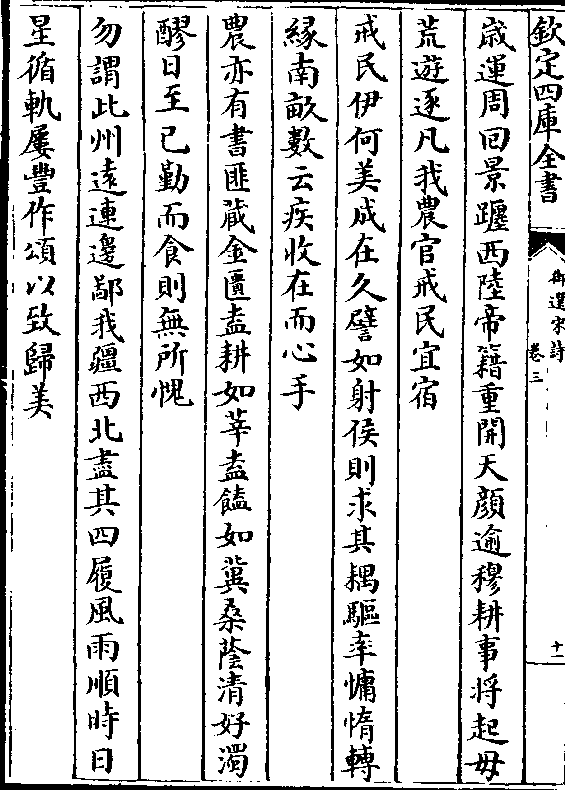 欽定四庫全書
御選宋詩
卷三
十一
歲運周回景躔西陸帝籍重開天顔逾穆耕事将起毋
荒遊逐凡我農官戒民宜宿
戒民伊何美成在久譬如射侯則求其耦驅率慵惰轉
緣南畝數云疾收在而心手
農亦有書匪蔵金匱盍耕如莘盍饁如冀桑蔭清好濁
醪日至已勤而食則無所愧
勿謂此州逺連邊鄙我疆西北盡其四履風雨順時日
星循軌屢豐作頌以致歸美